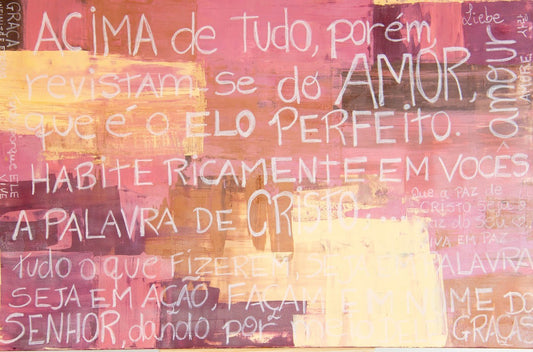 ACIMA de Tudo, porém,
revistam-se do AMOR,
que é o ELO PERFEITO.
HABITE RICAMENTE EM VOCES
A PALAVRA DE CRISTO,
Tudo o que FIZEREM, PALAVRA
SEJA EM AÇÃO, FAÇAM EM NOME DO
SENHOR, dando por GRAÇAS
GRAÇA
Liebe
amour
AMORE
porque ELE
VIVE
Que a PAZ de
CRISTO SEJA
VIVA EM PAZ